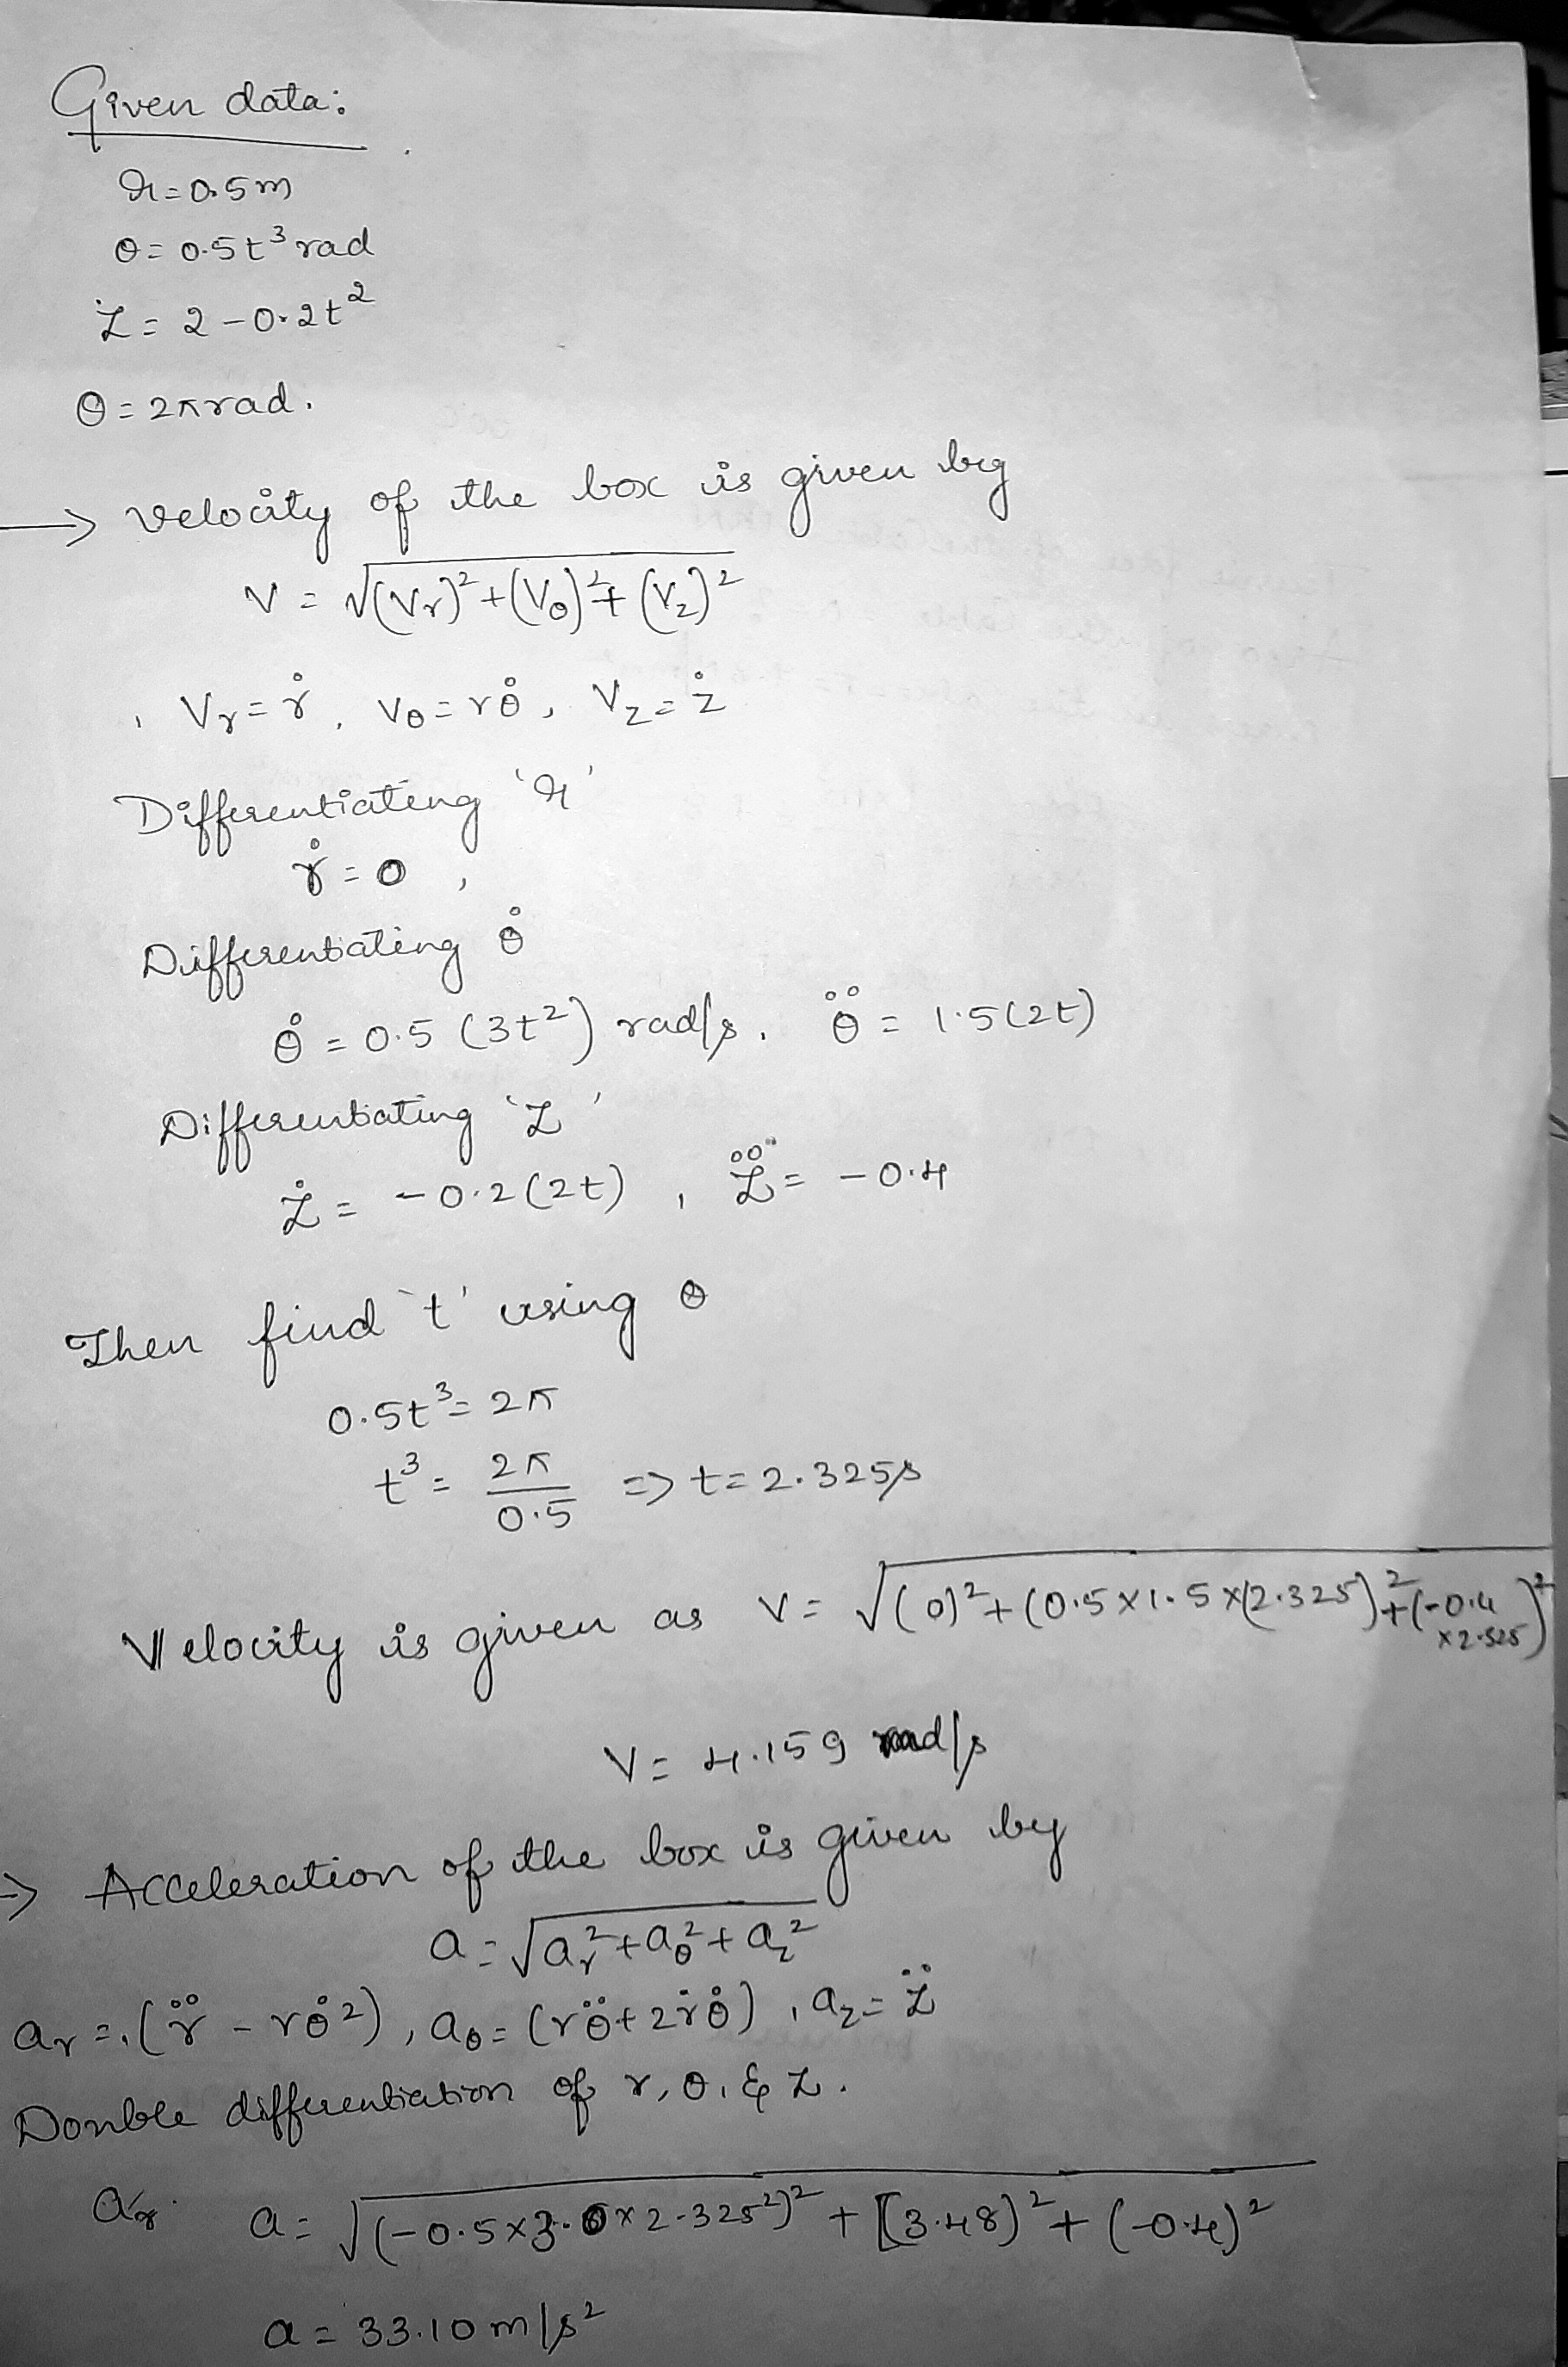 Given data:
r=0.5m
θ=0.5t³rad
Z=2-0.2t²
θ=2πrad.
→ velocity of the box is given by
V = √(Vr)²+(Vθ)²+(Vz)²
Vr=ṙ, Vθ=rθ̇, Vz=ż
Differentiating 'r'
ṙ=0,
Differentiating θ̇
θ̇=0.5(3t²) rad/s. θ̈=1.5(2t)
Differentiating 'Z'
Ż=-0.2(2t), Z̈=-0.4
Then find 't' using θ
0.5t³=2π
t³=2π/0.5 => t=2.325s
Velocity is given as V=√(0)²+(0.5×1.5×(2.325)²+(-0.4
V=4.159 /s
=> Acceleration of the box is given by
a=√ar²+aθ²+az²
ar=(r̈-rθ̇²), aθ=(rθ̈+2ṙθ̇), az=Z̈
Double differentiation of r,θ,& Z.
ar. a=√(-0.5×3.0×2.325²)²+[(3.48)²+(-0.4)²
a=33.10m/s²